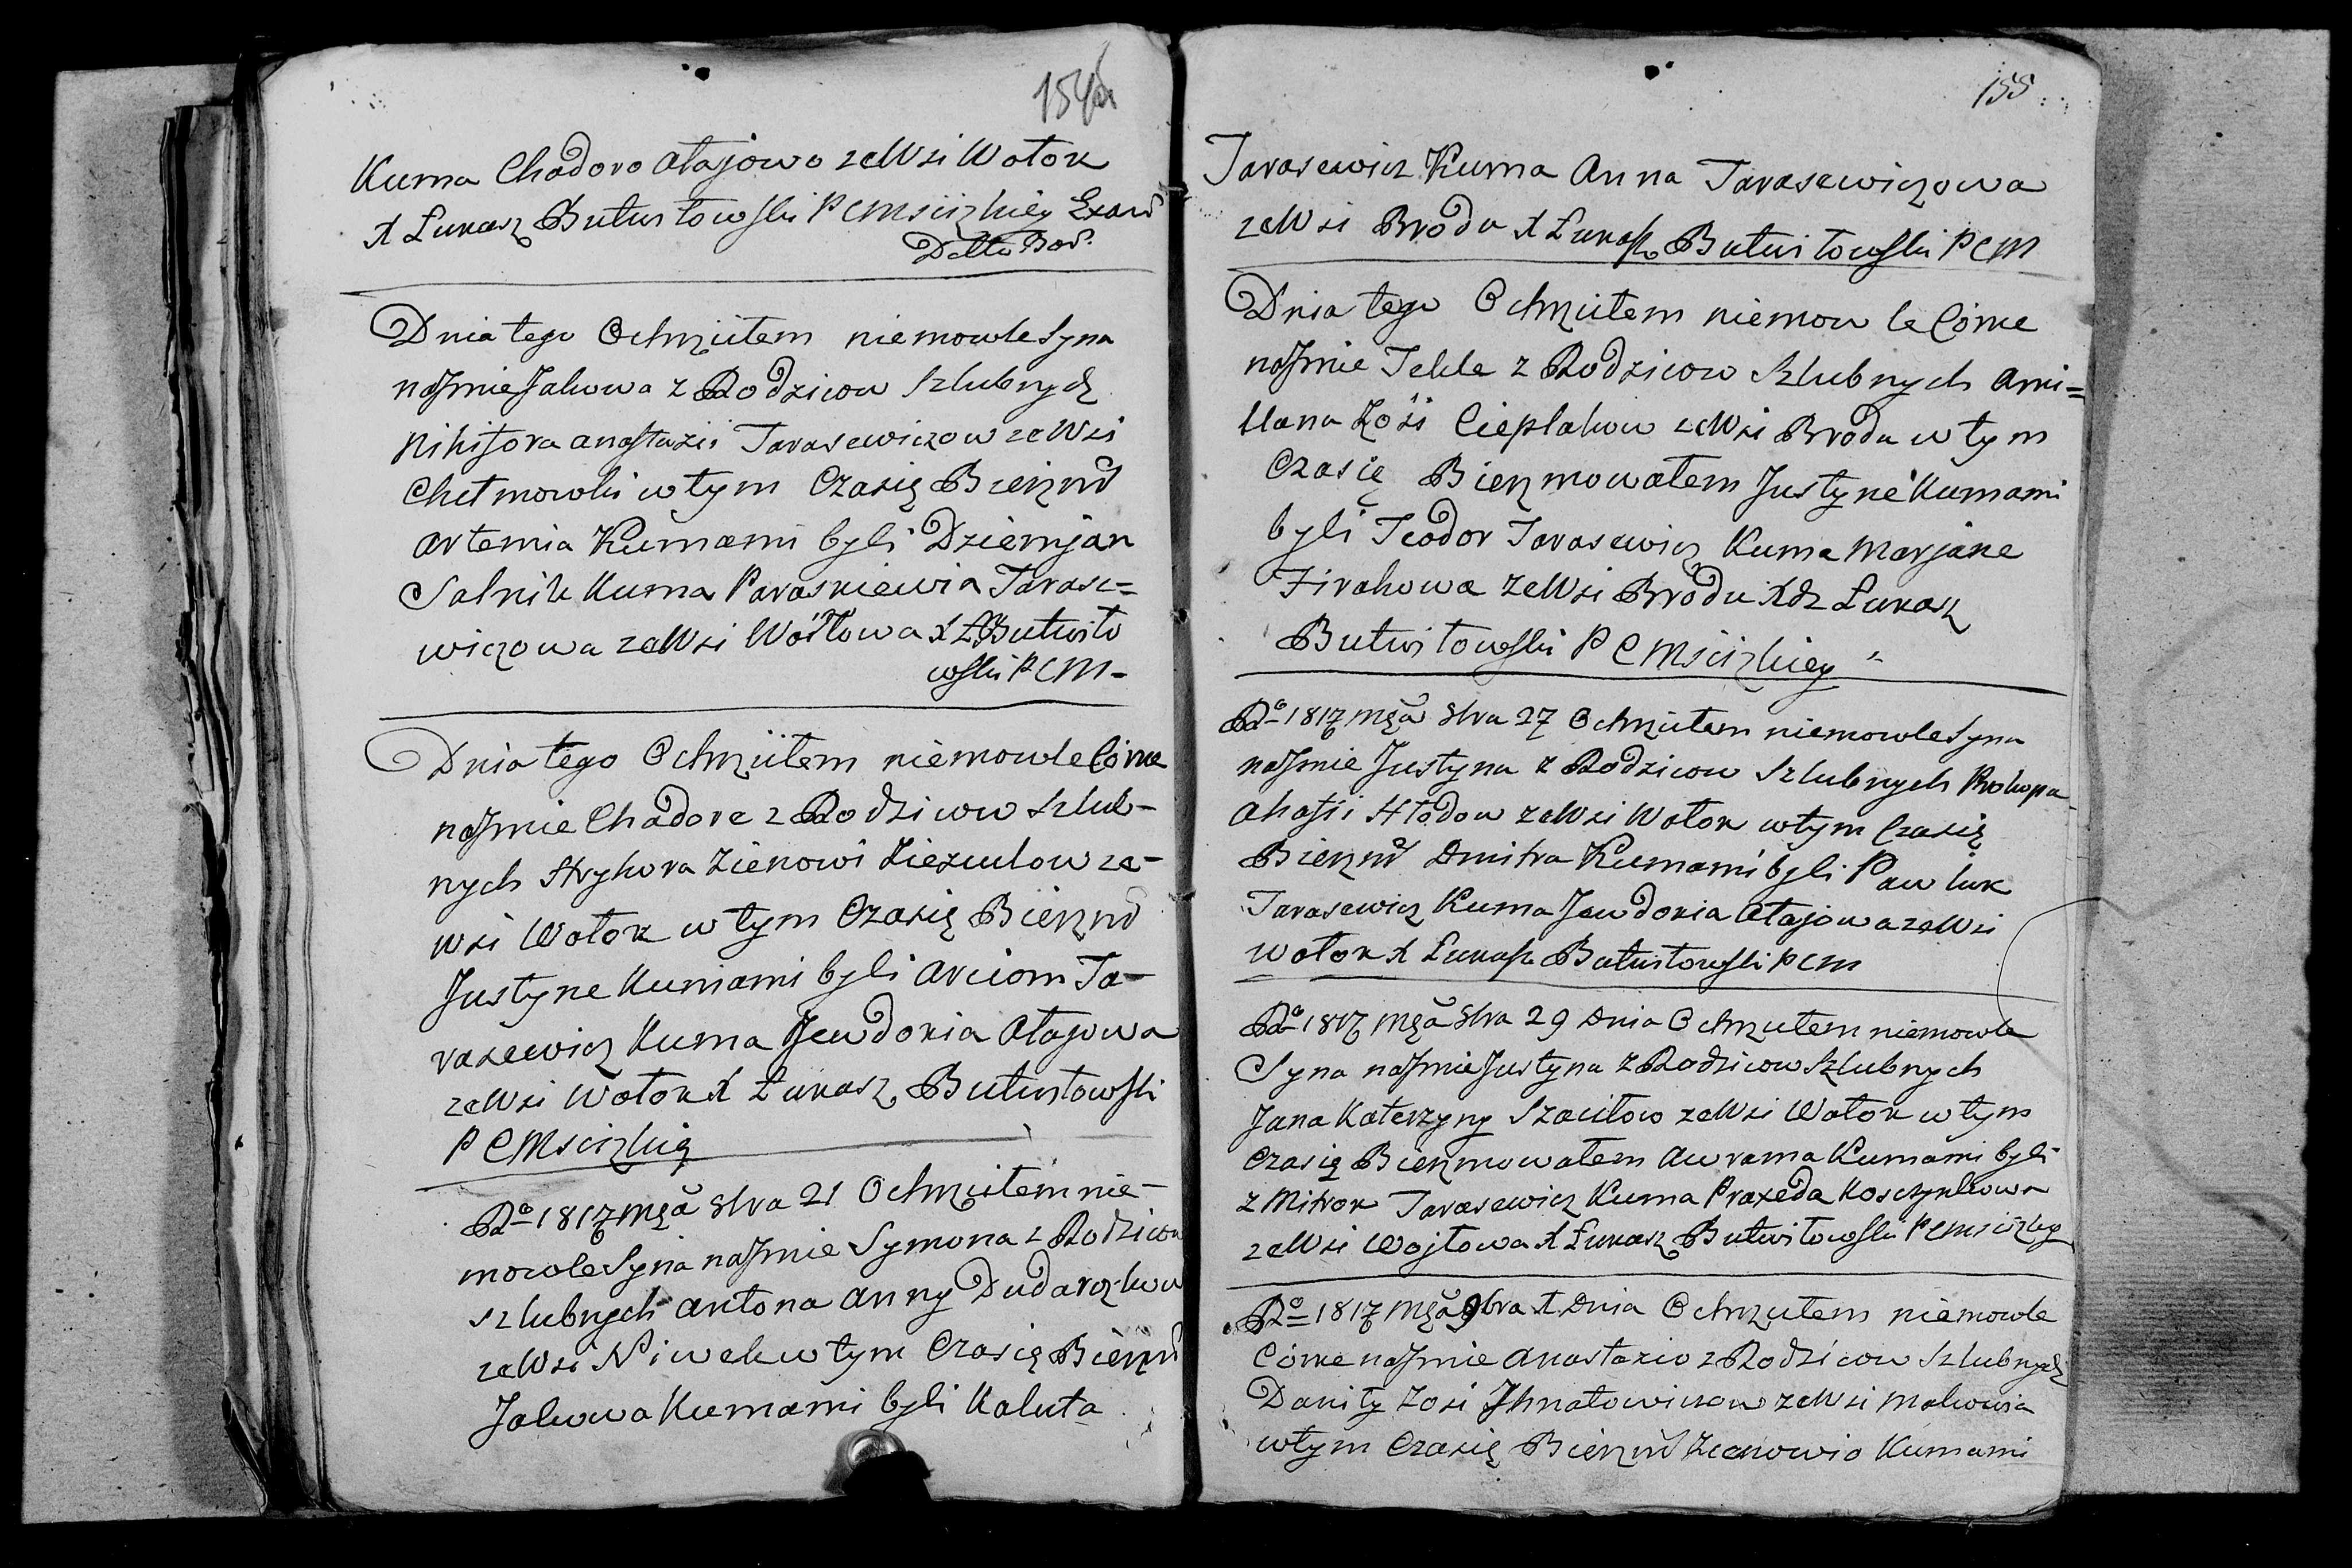 154
Kuma Chadora Atajowa ze Wsi Wołok
X Łukasz Butwiłowski P C Mścizkiey Exam
Deko Bob.
Dnia tego Ochrzciłem niemowle Syna
na Jmie Jakowa z Rodzicow Szlubnych
Nikifora Anastazii Tarasewiczow ze Wsi
Chełmowki w tym Czasię Bierzm
Artemia Kumami byli Dziemjan
Salnik Kuma Paraskiewia Tarase=
wiczowa ze Wsi Woỹtowa X Ł Butwiło
wski P C M -
Dnia tego Ochrzciłem niemowle Córke
na Jmie Chadore z Rodzicow Szlub-
nych Hryhora Zienowi Ziezulow ze-
wsi Wołok w tym Czasię Bierzm
Justyne Kumami byli Arciom Ta-
rasewicz Kuma Jewdokia Atajowa
ze Wsi Wołok X Łukasz Butwiłowski
P C Mścizkię
Ro 1817 Mca 8bra 21 Ochrzciłem nie-
mowle Syna na Jmie Symona z Rodzicow
Szlubnych Antona Anny Dudarczkow
ze Wsi Niwek w tym Czasię Bierzm
Jakowa Kumami byli Kaluta
155
Tarasewicz Kuma Anna Tarasewiczowa
ze Wsi Brodu X Łukasz Butwiłowski P C M
Dnia tego Ochrzciłem niemowle Córke
na Jmie Tekle z Rodzicow Szlubnych Ami=
llana Zośi Cieplakow ze Wsi Brodu w tym
Czasię Bierzmowałem Justyne Kumami
byli Teodor Tarasewicz Kuma Marjana
Zirakowa ze Wsi Brodu Xdz Łukasz
Butwiłowski P C Mścizkiey
Ro 1817 Mca 8bra 27 Ochrzciłem niemowle Syna
na Jmie Justyna z Rodzicow Szlubnych Prokopa
Ahafii Hłodow ze Wsi Wołok w tym Czasię
Bierzm Dmitra Kumami byli Pawluk
Tarasewicz Kuma Jewdokia Atajowa ze Wsi
Wołok X Łukasz Butwiłowski P C M
Ro 1817 Mca 8bra 29 Dnia Ochrzciłem niemowle
Syna na Jmie Justyna z Rodzicow Szlubnych
Jana Katerzyny Szaciłow ze Wsi Wołok w tym
Czasię Bierzmowałem Awrama Kumami byli
Zmitrok Tarasewicz Kuma Praxeda Kosczynkowa
ze Wsi Wojtowa X Łukasz Butwiłowski P C Mścizkiey
Ro 1817 Mca 9bra 1 Dnia Ochrzciłem niemowle
Córke na Jmie Anastazio z Rodzicow Szlubnych
Daniły Zosi Jhnatowiczow ze Wsi Makowia
w tym Czasię Bierzm Zienowio Kumami